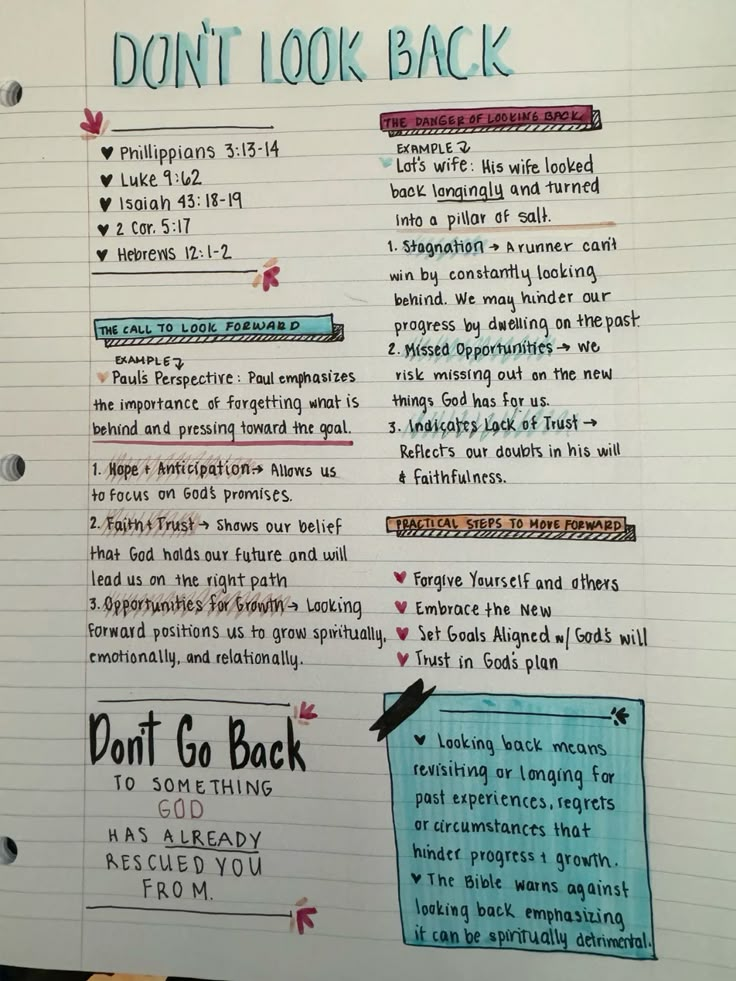 DON'T LOOK BACK
♥ Phillippians 3:13-14
♥ Luke 9:62
♥ Isaiah 43:18-19
♥ 2 Cor. 5:17
♥ Hebrews 12:1-2
THE CALL TO LOOK FORWARD
EXAMPLE
♥ Paul's Perspective: Paul emphasizes
the importance of forgetting what is
behind and pressing toward the goal.
1. Hope + Anticipation → Allows us
to focus on God's promises.
2. Faith + Trust → Shows our belief
that God holds our future and will
lead us on the right path
3. Opportunities for Growth → Looking
Forward positions us to grow spiritually,
emotionally, and relationally.
Don't Go Back
TO SOMETHING
GOD
HAS ALREADY
RESCUED YOU
FROM.
THE DANGER OF LOOKING BACK
EXAMPLE
♥ Lot's wife: His wife looked
back longingly and turned
into a pillar of salt.
1. Stagnation → A runner can't
win by constantly looking
behind. We may hinder our
progress by dwelling on the past.
2. Missed Opportunities → We
risk missing out on the new
things God has for us.
3. Indicates Lack of Trust →
Reflects our doubts in his will
& faithfulness.
PRACTICAL STEPS TO MOVE FORWARD
♥ Forgive Yourself and others
♥ Embrace the New
♥ Set Goals Aligned w/ God's will
♥ Trust in God's plan
♥ Looking back means
revisiting or longing for
past experiences, regrets
or circumstances that
hinder progress + growth.
♥ The Bible warns against
looking back emphasizing
it can be spiritually detrimental.